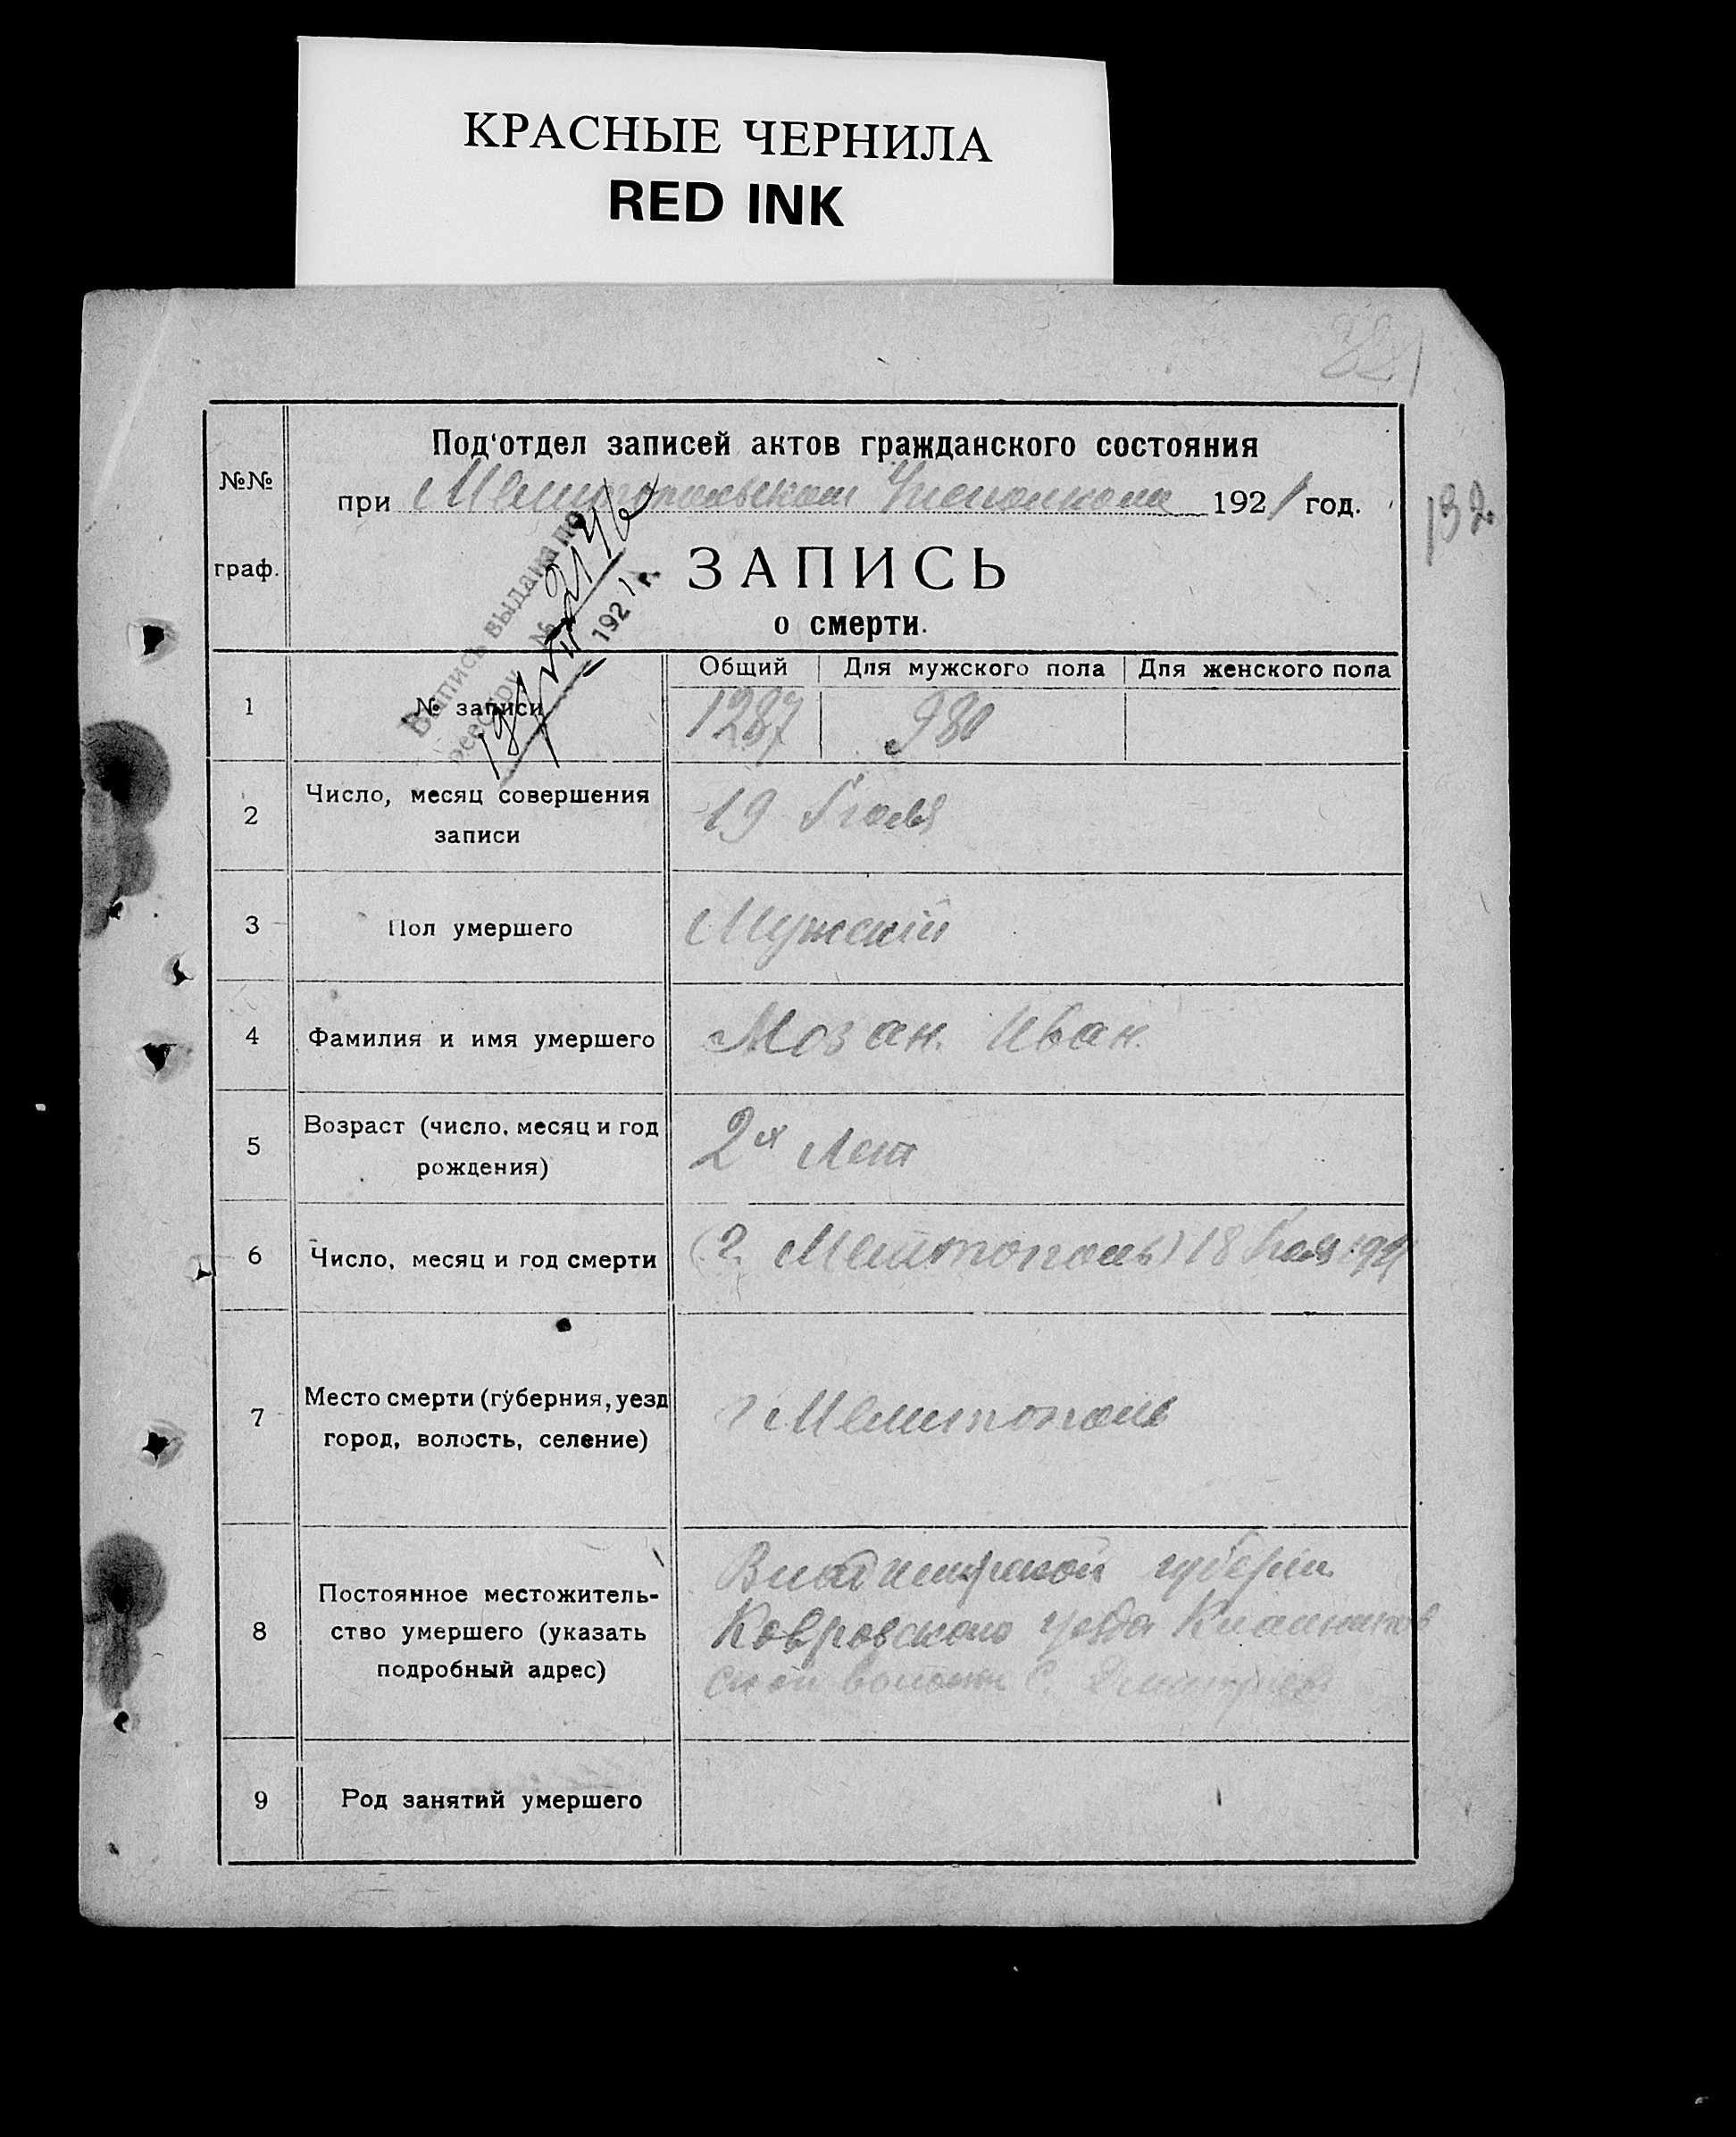 КРАСНЫЕ ЧЕРНИЛА
RED INK
Под'отдел записей актов гражданского состояния
№№
при Мелитопольском 1921 год.
132
граф.
ЗАПИСЬ
о смерти.
Выпись выдана по
реестру № 2146
19/VII 1921 г.
Общий Для мужского пола Для женского пола
1 № записи 1287 980
2 Число, месяц совершения
записи
19 Июля
3 Пол умершего Мужской
4 Фамилия и имя умершего Мозан. Иван.
5 Возраст (число, месяц и год
рождения)
2х Лет
6 Число, месяц и год смерти (г. Мелитополь) 18 Июля 1921
7 Место смерти (губерния, уезд
город, волость, селение)
г Мелитополь
8 Постоянное местожитель-
ство умершего (указать
подробный адрес)
Владимирской губерни
Ковровского уезда
ской волости с.
9 Род занятий умершего